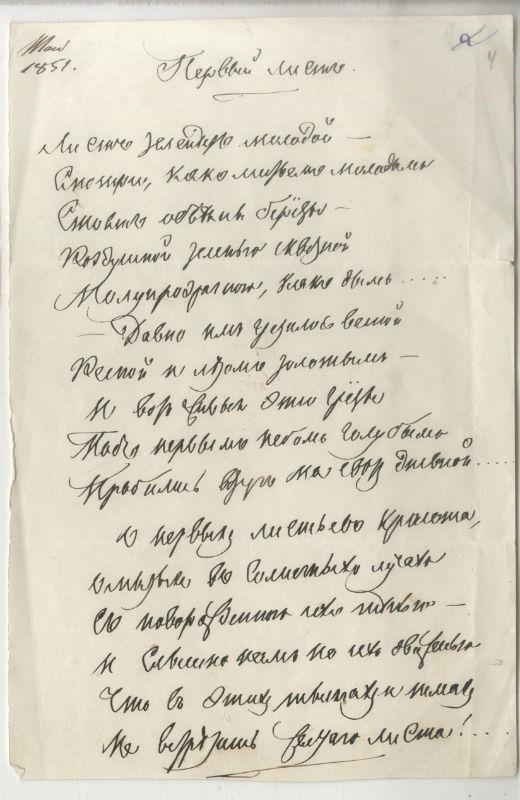 Май
1851.
4
Первый листъ.
Листъ зеленѣетъ молодой —
Смотри, какъ листьемъ молодымъ
Стоятъ обвѣяны берёзы —
Воздушной зеленью сквозной
Полупрозрачною, какъ дымъ.....
— Давно имъ грезилось весной
Весной и лѣтомъ золотымъ —
И вотъ живыя эти грёзы
Подъ первымъ небомъ голубымъ
Пробились вдругъ на свѣт дневной....
О первыхъ листьевъ красота,
Омытыхъ въ солнечныхъ лучахъ
Съ новорожденною ихъ тѣнью —
И слышно намъ по ихъ движенью
Что въ этихъ тысячахъ и тьмахъ
Не встрѣтишь желтаго листа!...